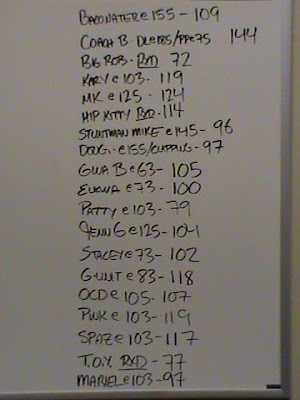 BACONATER @ 155 - 109
COACH B - DL@185/PP@75 144
BIG ROB - RXD 72
KARY @ 103 - 119
MK @ 125 - 124
HIP KITTY RXD - 114
STUNTMAN MIKE @ 145 - 96
DOUG - @ 155/CUPPING - 97
GWA B @ 63 - 105
@ 73 - 100
PATTY @ 103 - 79
JENN G @ 125 - 104
STACEY @ 73 - 102
G-UNIT @ 83 - 118
OCD @ 105 - 107
PWK @ 103 - 119
SPAZ @ 103 - 117
T.O.Y. RXD - 77
MARIEL @ 103 - 97